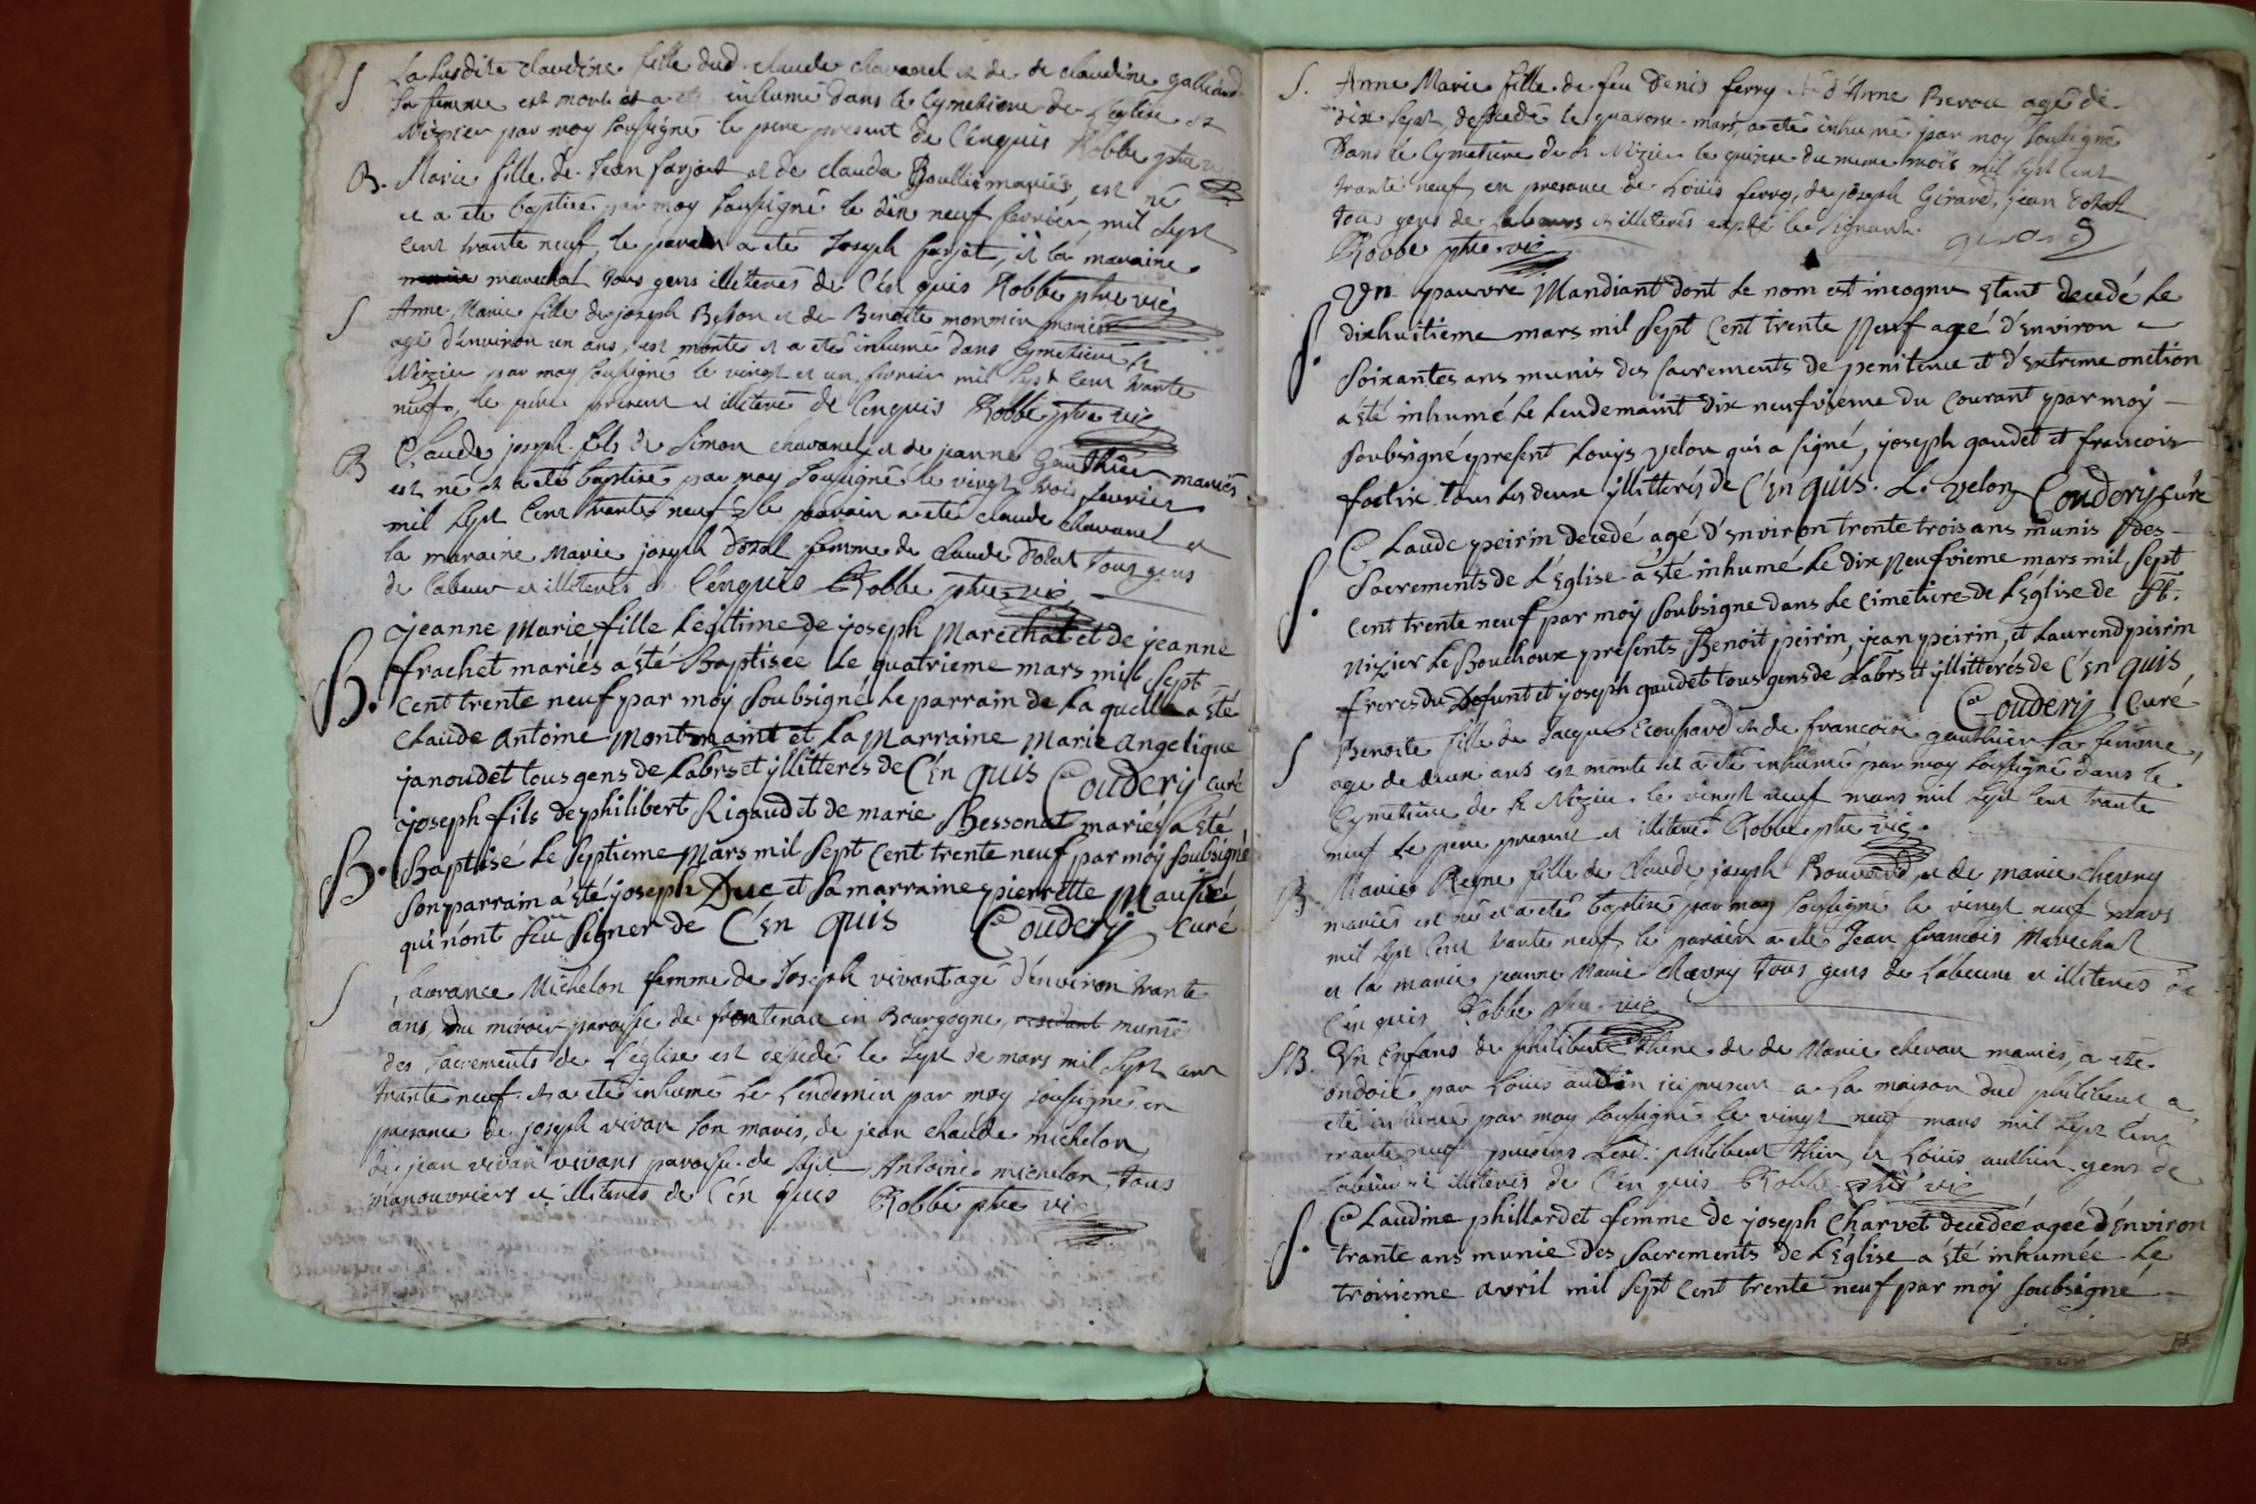 S La susdite claudine fille dud. claude chavanel et de de claudine galliard
sa femme est morte et a eté inhumé dans le Cymetiere de L'eglise st
Nizier par moy soussigné le pere present de C'enquis Robbe ptre
B. Marie fille de Jean farjot et de clauda Boullier mariés est né
et a eté baptisé par moy soussigné le dix neuf fevrier mil sept
cent trante neuf, le parain a eté Joseph farjot, et la maraine
marechal tous gens illiterés de C'en quis Robbe ptre vic
S Anne Marie fille de joseph Besson et de Benoite monmin mariés
agé d'environ un ans, est morte et a eté inhumé dans Cymetiere st
Nizier par moy soussigné le vingt et un fevrier mil sept cent trante
neuf, le pere present et illiteré de C'enquis Robbe ptre vic
B Claude joseph fils de Simon chavanel et de jeanne Gauthier mariés
est né et a eté baptisé par moy soussigné le vingt trois fevrier
mil sept cent trante neuf le parain a eté claude chavanel et
la maraine Marie joseph Dodat femme de claude Dodat tous gens
de labeur et illiterés de C'enquis Robbe ptre vic
B. jeanne Marie fille Légitime de joseph Marechal et de jeanne
frachet mariés a été Baptisée Le quatrieme mars mil sept
cent trente neuf par moÿ soubsigné Le parrain de La quelle a été
claude Antoine Montmaint et La Marraine Marie Angelique
janoudet tous gens de Labrs et ÿllitterés de C'en quis Coudery curé
B. joseph fils de philibert Rigaud et de marie Bessonat mariés a été
Baptisé Le septieme Mars mil sept cent trente neuf par moÿ soubsigné
son parrain a été joseph Duc et sa marraine pierrette Mautié,
qui n'ont sceu signer de C'en quis Coudery curé
S Laurance Michelon femme de Joseph vivant agé d'environ trante
ans, du miroir paroisse de frontenau en Bourgogne, residant munie
des sacrements de L'église est decedé le sept de mars mil sept cent
trante neuf. et a eté inhumé Le Lendemin par moy soussigné en
presance de joseph vivan son maris, de jean claude michelon
de jean vivan vivans paroisse de Antoine michelon tous
manouvriers et illiterés de C'en quis Robbe ptre vic
S. Anne Marie fille de feu Denis ferry et d'Anne Berou agé de
dix sept, decedé le quatorse mars, a eté inhumé par moy soussigné
Dans le Cymetiere de st Nizier le quinse du meme mois mil sept cent
trante neuf en presance de Loüis ferry, de joseph Girard, jean Dodat
tous gens de labeurs et illiterés excpté les signants. girard
Robbe ptre vic
S. Vn pauvre Mandiant dont Le nom est incognu étant decedé Le
dixhuitieme mars mil sept cent trente Neuf agé d'environ
soixantes ans munis des sacrements de penitence et d'extreme onction
a été inhumé Le Lendemaint dix neufvieme du courant par moÿ
soubsigné present Louÿs velon qui a signé, joseph gaudet et francois
foctix tous Les deux ÿllitterés de C'en quis. L. velon Coudery curé
S. Claude peirin decedé agé d'environ trente trois ans munis des
sacrements de L'église a été inhumé Le dix Neufvieme mars mil sept
cent trente neuf par moÿ soubsigne dans Le cimetiere de L'église de St.
Nizier Le Bouchoux présents Benoit peirin, jean peirin, et Laurend peirin
freres du Defunt et joseph gaudet tous gens de Labrs et ÿllitterés de C'en quis
Coudery Curé
S Benoite fille de Jacque Ecoussard et de francoise gauthier sa femme,
age de deux ans est morte et a eté inhumé par moy soussigné dans le
Cymetiere de st Nizier le vingt neuf mars mil sept cent trante
neuf le pere present et illiteré Robbe ptre vic.
B Marie Reyne fille de claude joseph Bouvard et de marie chevry
mariés est né et a eté baptisé par moy soussigné le vingt neuf mars
mil sept cent trante neuf le parain a eté Jean francois Marechal
et la marie jeanne Marie chevry tous gens de Labeure et illiterés de
C'en quis Robbe ptre vic
SB. Vn Enfans de philibert thine de de Marie chevau mariés, a eté
ondoié par Louis autin ici present a La maison dud philibert a
eté inhumé par moy soussigné le vingt neuf mars mil sept cent
trante neuf presens Led: philibert thin, et Louis authin gens de
labeur et illiterés de C'en quis Robbe ptre vic
S. Claudine phillardet femme de joseph Charvet decedée agée d'environ
trante ans munie des sacrements de L'église a été inhumée Le
troisieme avril mil sept cent trente neuf par moÿ soubsigné